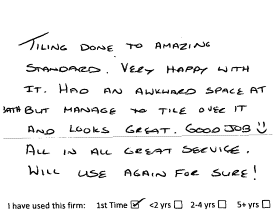 TILING DONE TO AMAZING
STANDARD. VERY HAPPY WITH
IT. HAD AN AWKWARD SPACE AT
BATH BUT MANAGE TO TILE OVER IT
AND LOOKS GREAT. GOOD JOB
ALL IN ALL GREAT SERVICE.
WILL USE AGAIN FOR SURE!
I have used this firm: 1st Time ☑ <2 yrs ☐ 2-4 yrs ☐ 5+ yrs ☐